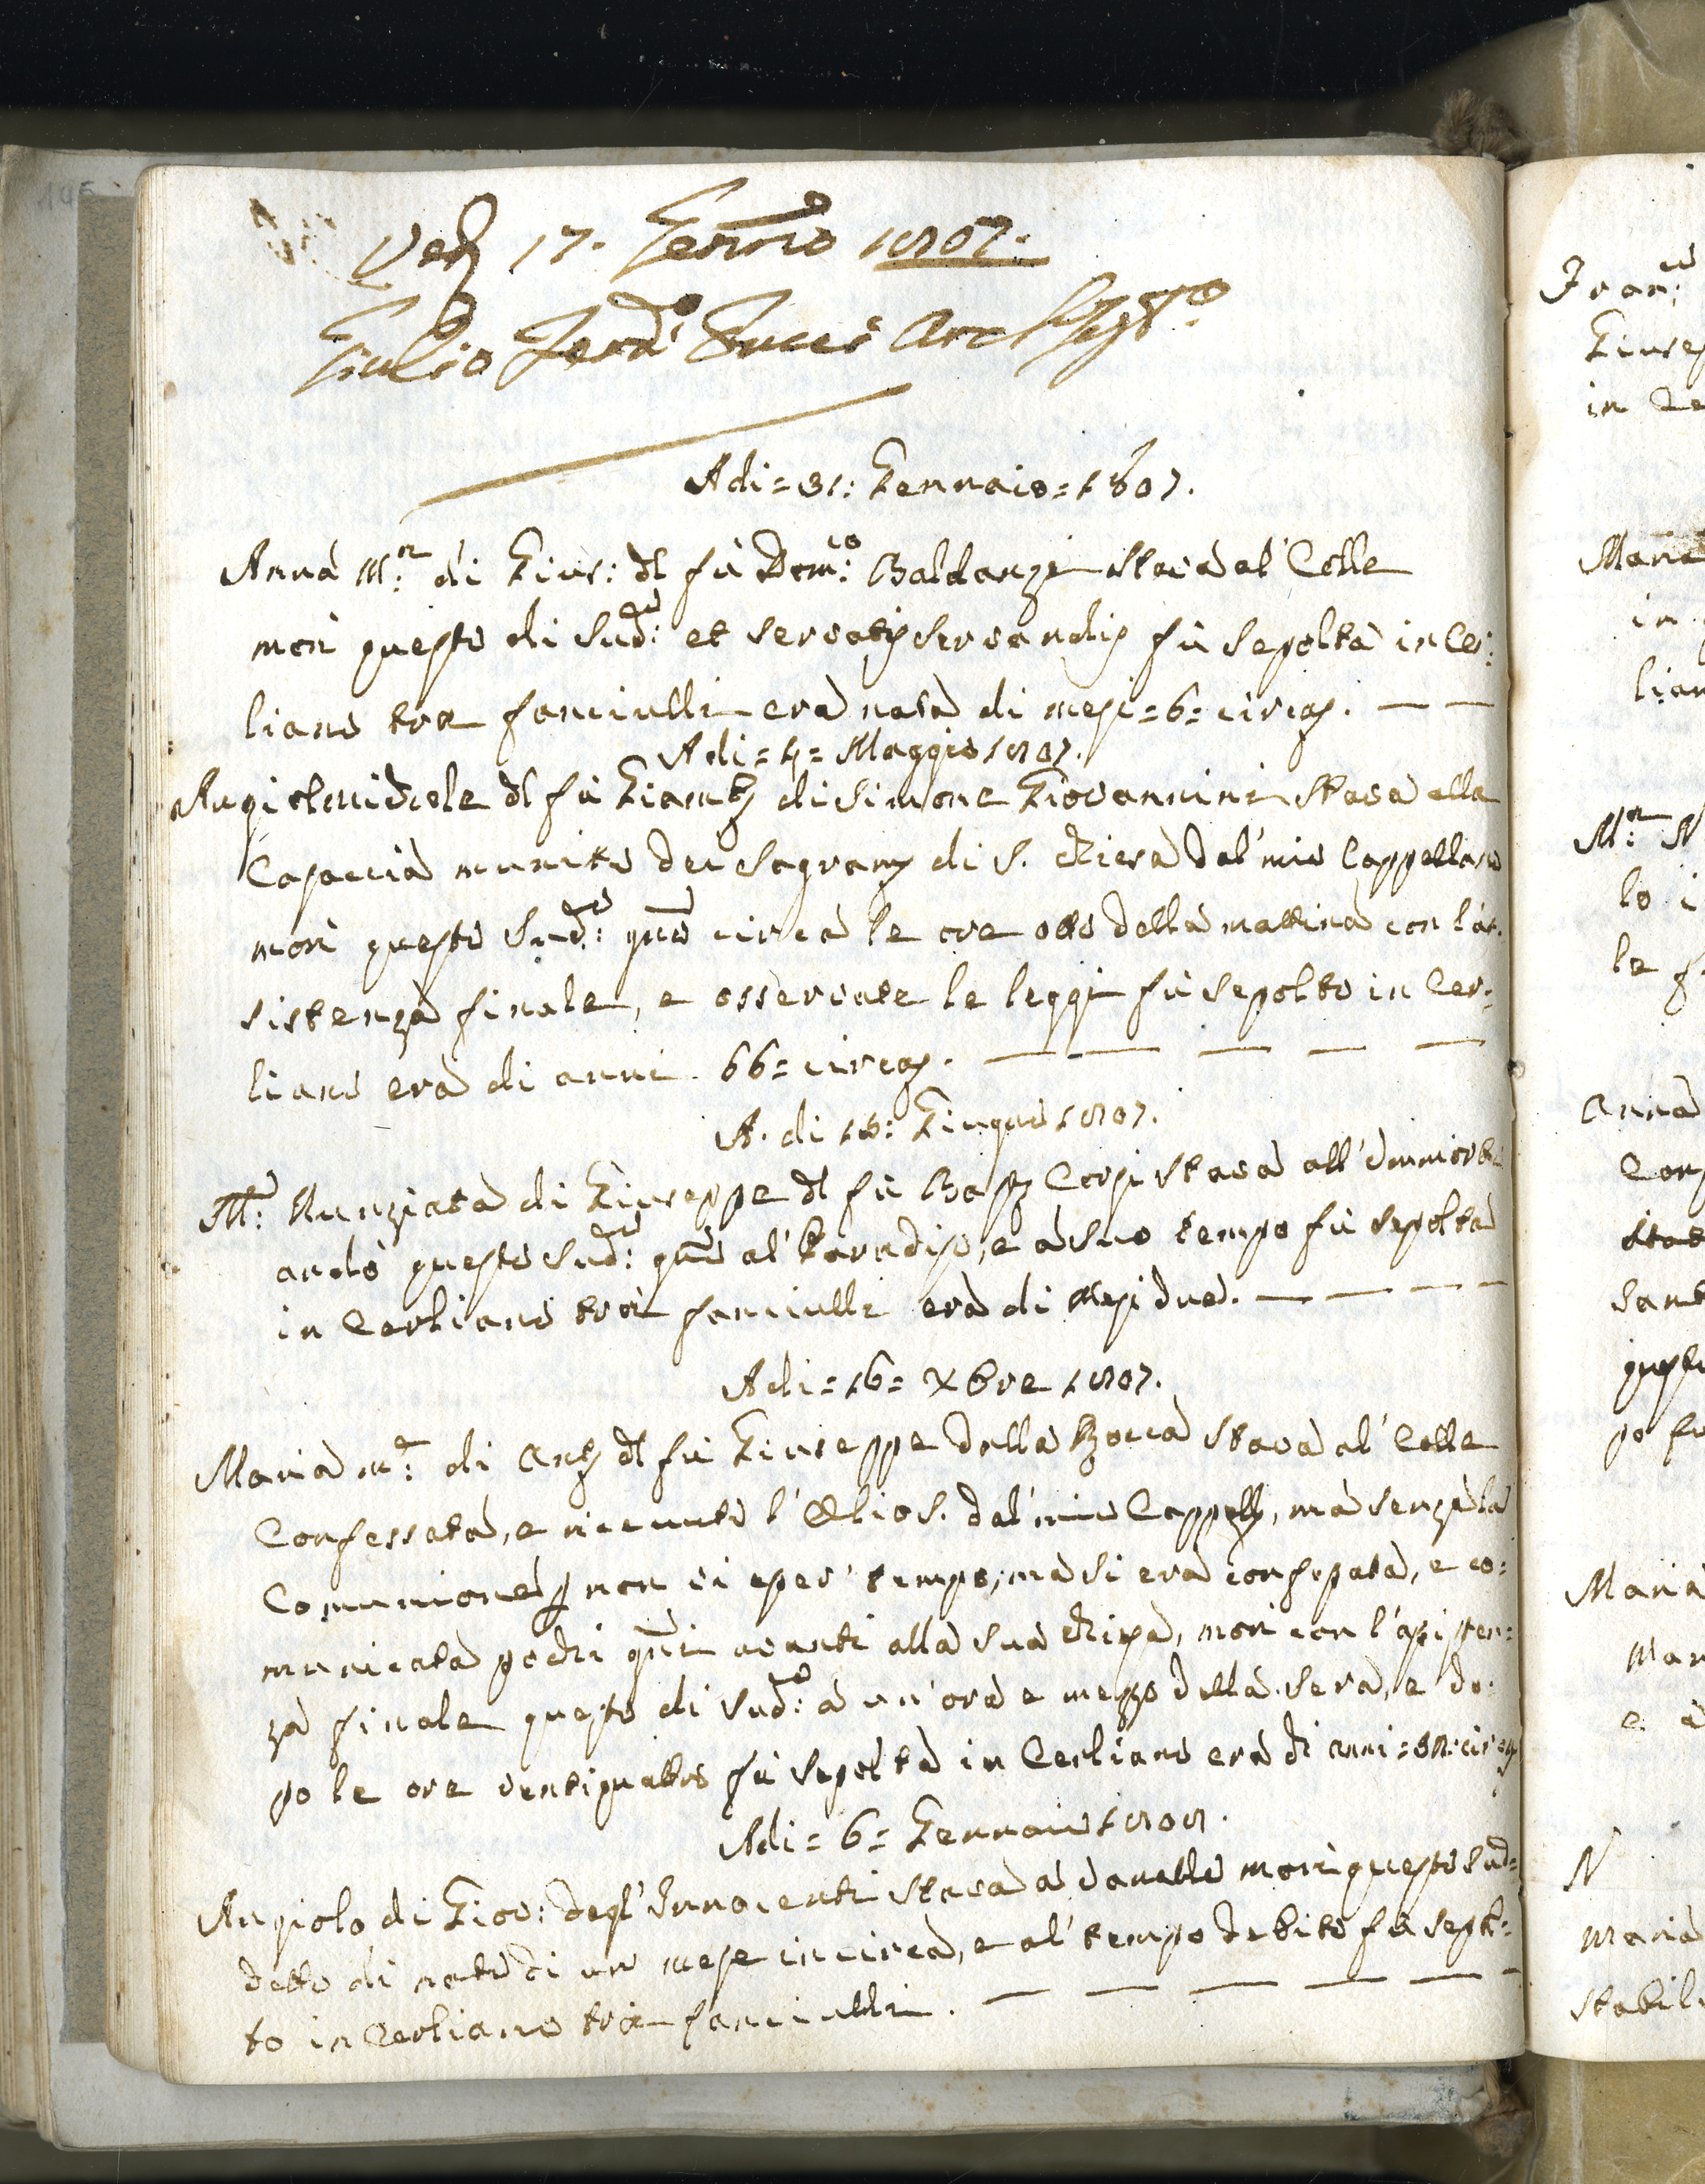 17. Genn.o 1807.
Giulio Ferd.o Succi
Adi = 31: Gennaio = 1807.
Anna M.a di Gius: dl fù Dom.co Baldanzi stava al' Colle
morì questo di sud.o et servatis servandis fù sepolta in Cer:
liano tra fanciulli era nata di mesi = 6 = circa. — —
Adi = 4 = Maggio 1807.
Angiol dl fù di Simone Giovannini stava alla
Capaccia munito dei Sagram di S. Chiesa dal' mio Cappellano
morì questo Sud.o circa le ore otto della mattina con l'as:
sistenza finale, e osservate le leggi fù sepolto in Cer:
liano era di anni. 66 = circa. — — — — —
A. di Giugno 1807.
M.a Nunziata di Giuseppe dl fù Corsi stava all'
andò questo sud.o al' Paradiso, e à suo tempo fù sepolta
in Cerliano trà fanciulli era di Mesi due. — — — —
Adi = 16 = Xbre 1807.
Maria M.a di Ant dl fù Giuseppe della Rocca stava al' Colle
Confessata, e ricevuto l' Olio S. dal' mio Cappell, mà senza la
Comunione non vi esser' tempo, mà si era confessata, e co:
municata pochi avanti alla sua Chiesa, morì con l'assisten:
za finale questo di sud.o à un' ora e mezzo della sera, e do:
po le ore ventiquattro fù sepolta in Cerliano era di anni
Adi = 6 = Gennaio 1808.
Angiolo di Giov: degl' Innocenti stava à morì questo sud=
detto di nato di un mese in circa, e al' tempo debito fù sepol=
to in Cerliano trà fanciulli. — — — — — —